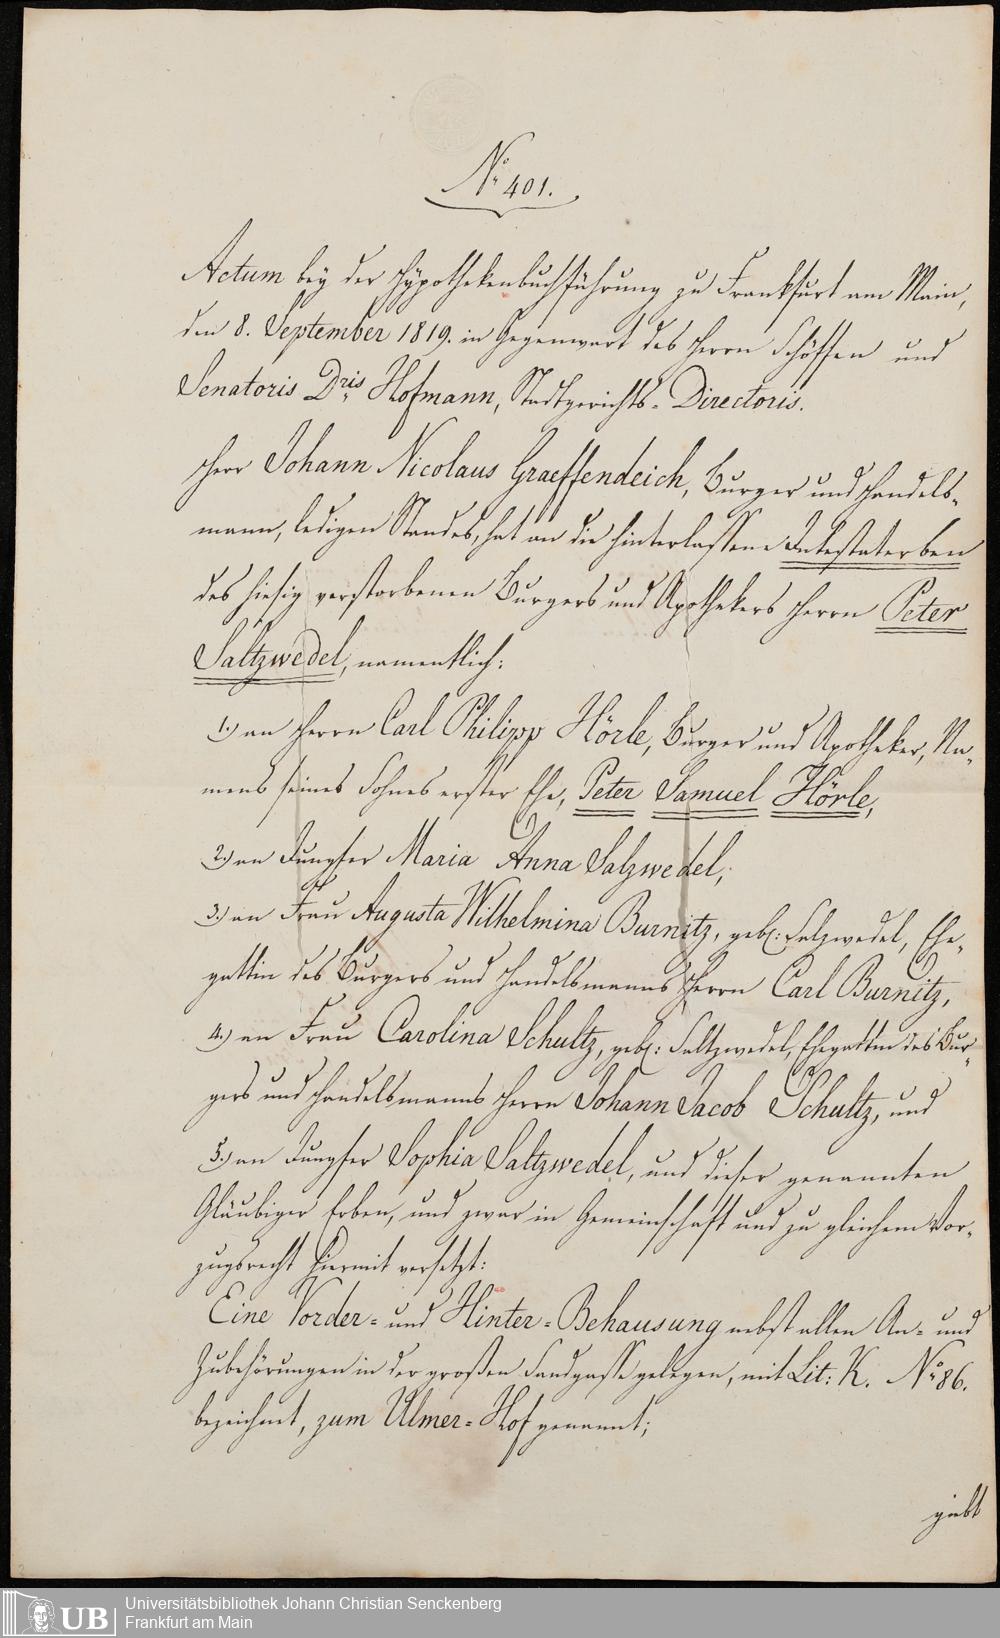 No. 401.
Actum bey der Hypothekenbuchführung zu Frankfurt am Main,
den 8. September 1819. in Gegenwart des Herrn Schöffen und
Senatoris Dris. Hofmann, Stadtgerichts-Directoris.
Herr Johann Nicolaus Graeffendeich, Burger und Handels-
mann, ledigen Standes, hat an die hinterlassene Intestaterben
des hiesig verstorbenen Burgers und Apothekers Herrn Peter
Saltzwedel, namentlich:
1.) an Herrn Carl Philipp Hörle, Burger und Apotheker, Na-
mens seines Sohnes erster Ehe, Peter Samuel Hörle,
2.) an Jungfer Maria Anna Salzwedel,
3.) an Frau Augusta Wilhelmina Burnitz, geb: Salzwedel, Ehe-
gattin des Burgers und Handelsmanns Herrn Carl Burnitz,
4.) an Frau Carolina Schultz, geb: Saltzwedel, Ehegattin des Bur-
gers und Handelsmanns Herrn Johann Jacob Schultz, und
5.) an Jungfer Sophia Saltzwedel, und dieser genannten
Gläubiger Erben, und zwar in Gemeinschaft und zu gleichem Vor-
zugsrecht hiermit versetzt:
Eine Vorder- und Hinter-Behausung nebst allen An- und
Zubehörungen in der großen Sandgasse gelegen, mit Lit: K. No. 86.
bezeichnet, zum Ulmer-Hof genannt;
giebt
UB
Universitätsbibliothek Johann Christian Senckenberg
Frankfurt am Main